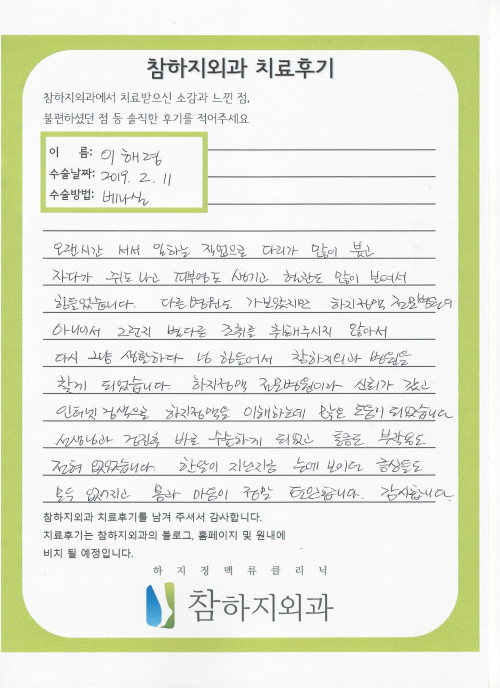 참하지외과 치료후기
참하지외과에서 치료받으신 소감과 느낀 점,
불편하셨던 점 등 솔직한 후기를 적어주세요
이 름: 이해경
수술날짜: 2019. 2. 11
수술방법: 베나실
오랜시간 서서 일하는 직업으로 다리가 많이 붓고
자다가 쥐도 나고 피부염도 생기고 혈관도 많이 보여서
힘들었습니다. 다른병원도 가보았지만 하지정맥 전문병원이
아니여서 그런지 별다른 조취를 취해주시지 않아서
다시 그냥 생활하다 넘 힘들어서 참하지외과 병원을
찾게 되었습니다. 하지정맥 전문병원이라 신뢰가 갔고
인터넷 검색으로 하지정맥을 이해하는데 많은 도움이 되었습니다
선생님과 검진후 바로 수술하게 되었고 통증도 부작용도
전혀 없었습니다. 한달이 지난지금 눈에 보이던 증상들도
모두 없어지고 몸과 마음이 정말 편안합니다. 감사합니다.
참하지외과 치료후기를 남겨 주셔서 감사합니다.
치료후기는 참하지외과의 블로그, 홈페이지 및 원내에
비치 될 예정입니다.
하지정맥류클리닉
참하지외과